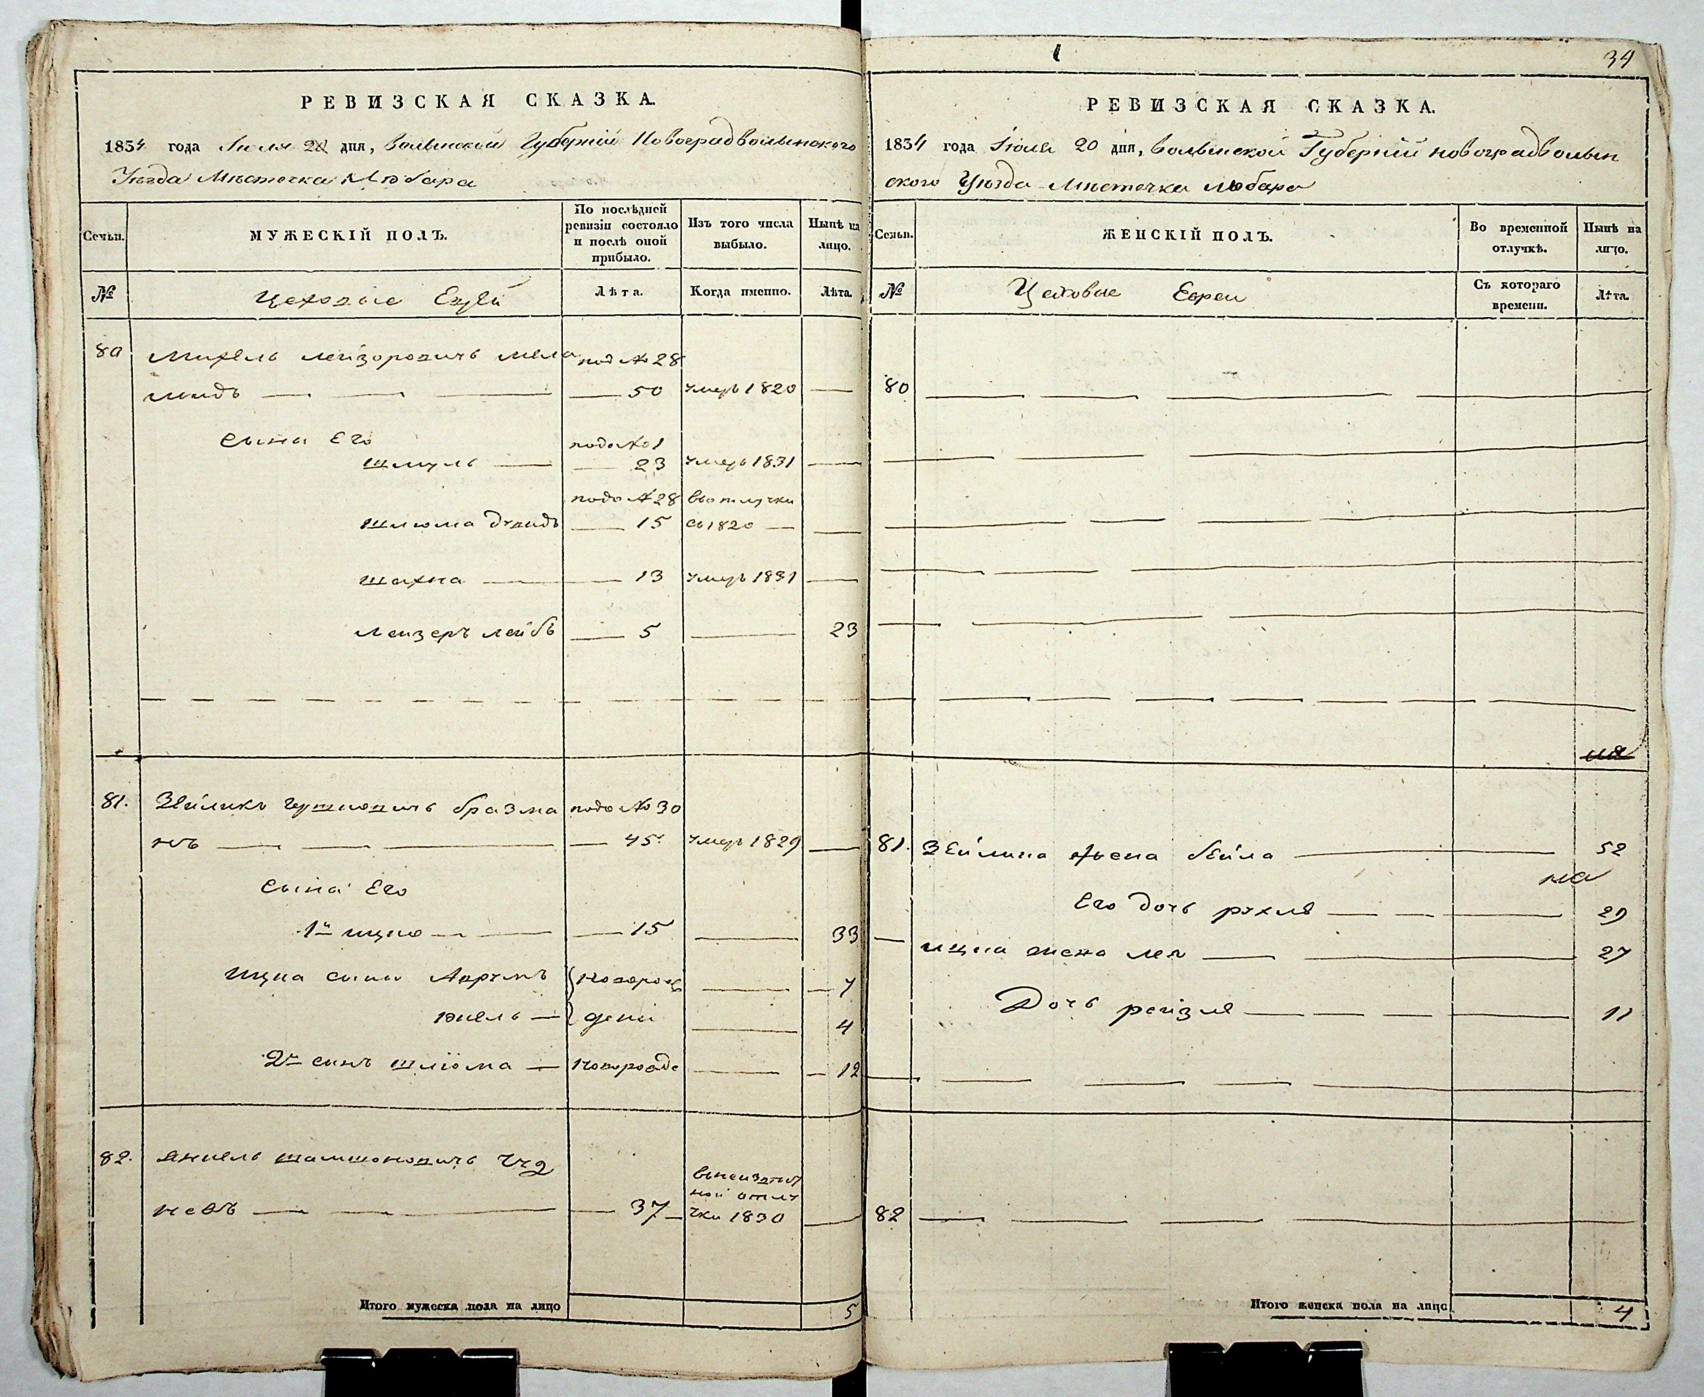 РЕВИЗСКАЯ СКАЗКА.
1834 года Іюля 20 дня, Волынской Губерніи Новоградволынского
Уѣзда Мѣстечка Любара
Семьи.
МУЖЕСКІЙ ПОЛЪ.
По послѣдней ревизіи состояло и послѣ оной прибыло.
Изъ того числа выбыло.
Нынѣ на лицо.
№
Цеховые Евреи
Лѣта.
Когда именно.
Лѣта.
80 Михель Лейзоровичъ Мела подъ №28
медъ — 50 умеръ 1820 —
сына Его подъ №1
Шмуль — 23 умеръ 1831 —
подъ №28 въ отлучки
Шлиома Дувидъ — 15 съ 1820 — —
Шахна — 13 умеръ 1831 —
Лейзеръ Лейбъ — 5 — 23
81. Зейликъ бразма подъ №30
нъ — 45 умеръ 1829 —
сына Его
1й Ицко — 15 — 33
Ицка сыны Аврумъ новорож — 7
— дены — 4
2й сынъ Шлиома — новорожде — 12
82. Янкель Шамшоновичъ
— 37 в неизвѣст
ной отлу
чки 1830 —
Итого мужеска пола на лицо 5
34
РЕВИЗСКАЯ СКАЗКА.
1834 года Іюля 20 дня, Волынской Губерніи Новоградволын
ского Уѣзда Мѣстечка Любара
Семьи.
ЖЕНСКІЙ ПОЛЪ.
Во временной отлучкѣ.
Нынѣ на лицо.
№
Цеховые Евреи
Съ котораго времени.
Лѣта.
80
81. Зейлика жена Бейла — 52
Его дочь Рухля — 29
Ицка жена Лея — 27
Дочь Рейзля — 11
82
Итого женска пола на лицо 4